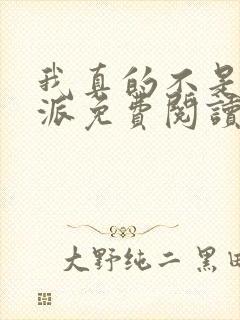 我真的不是
派免費閱讀
大野纯二 黑田